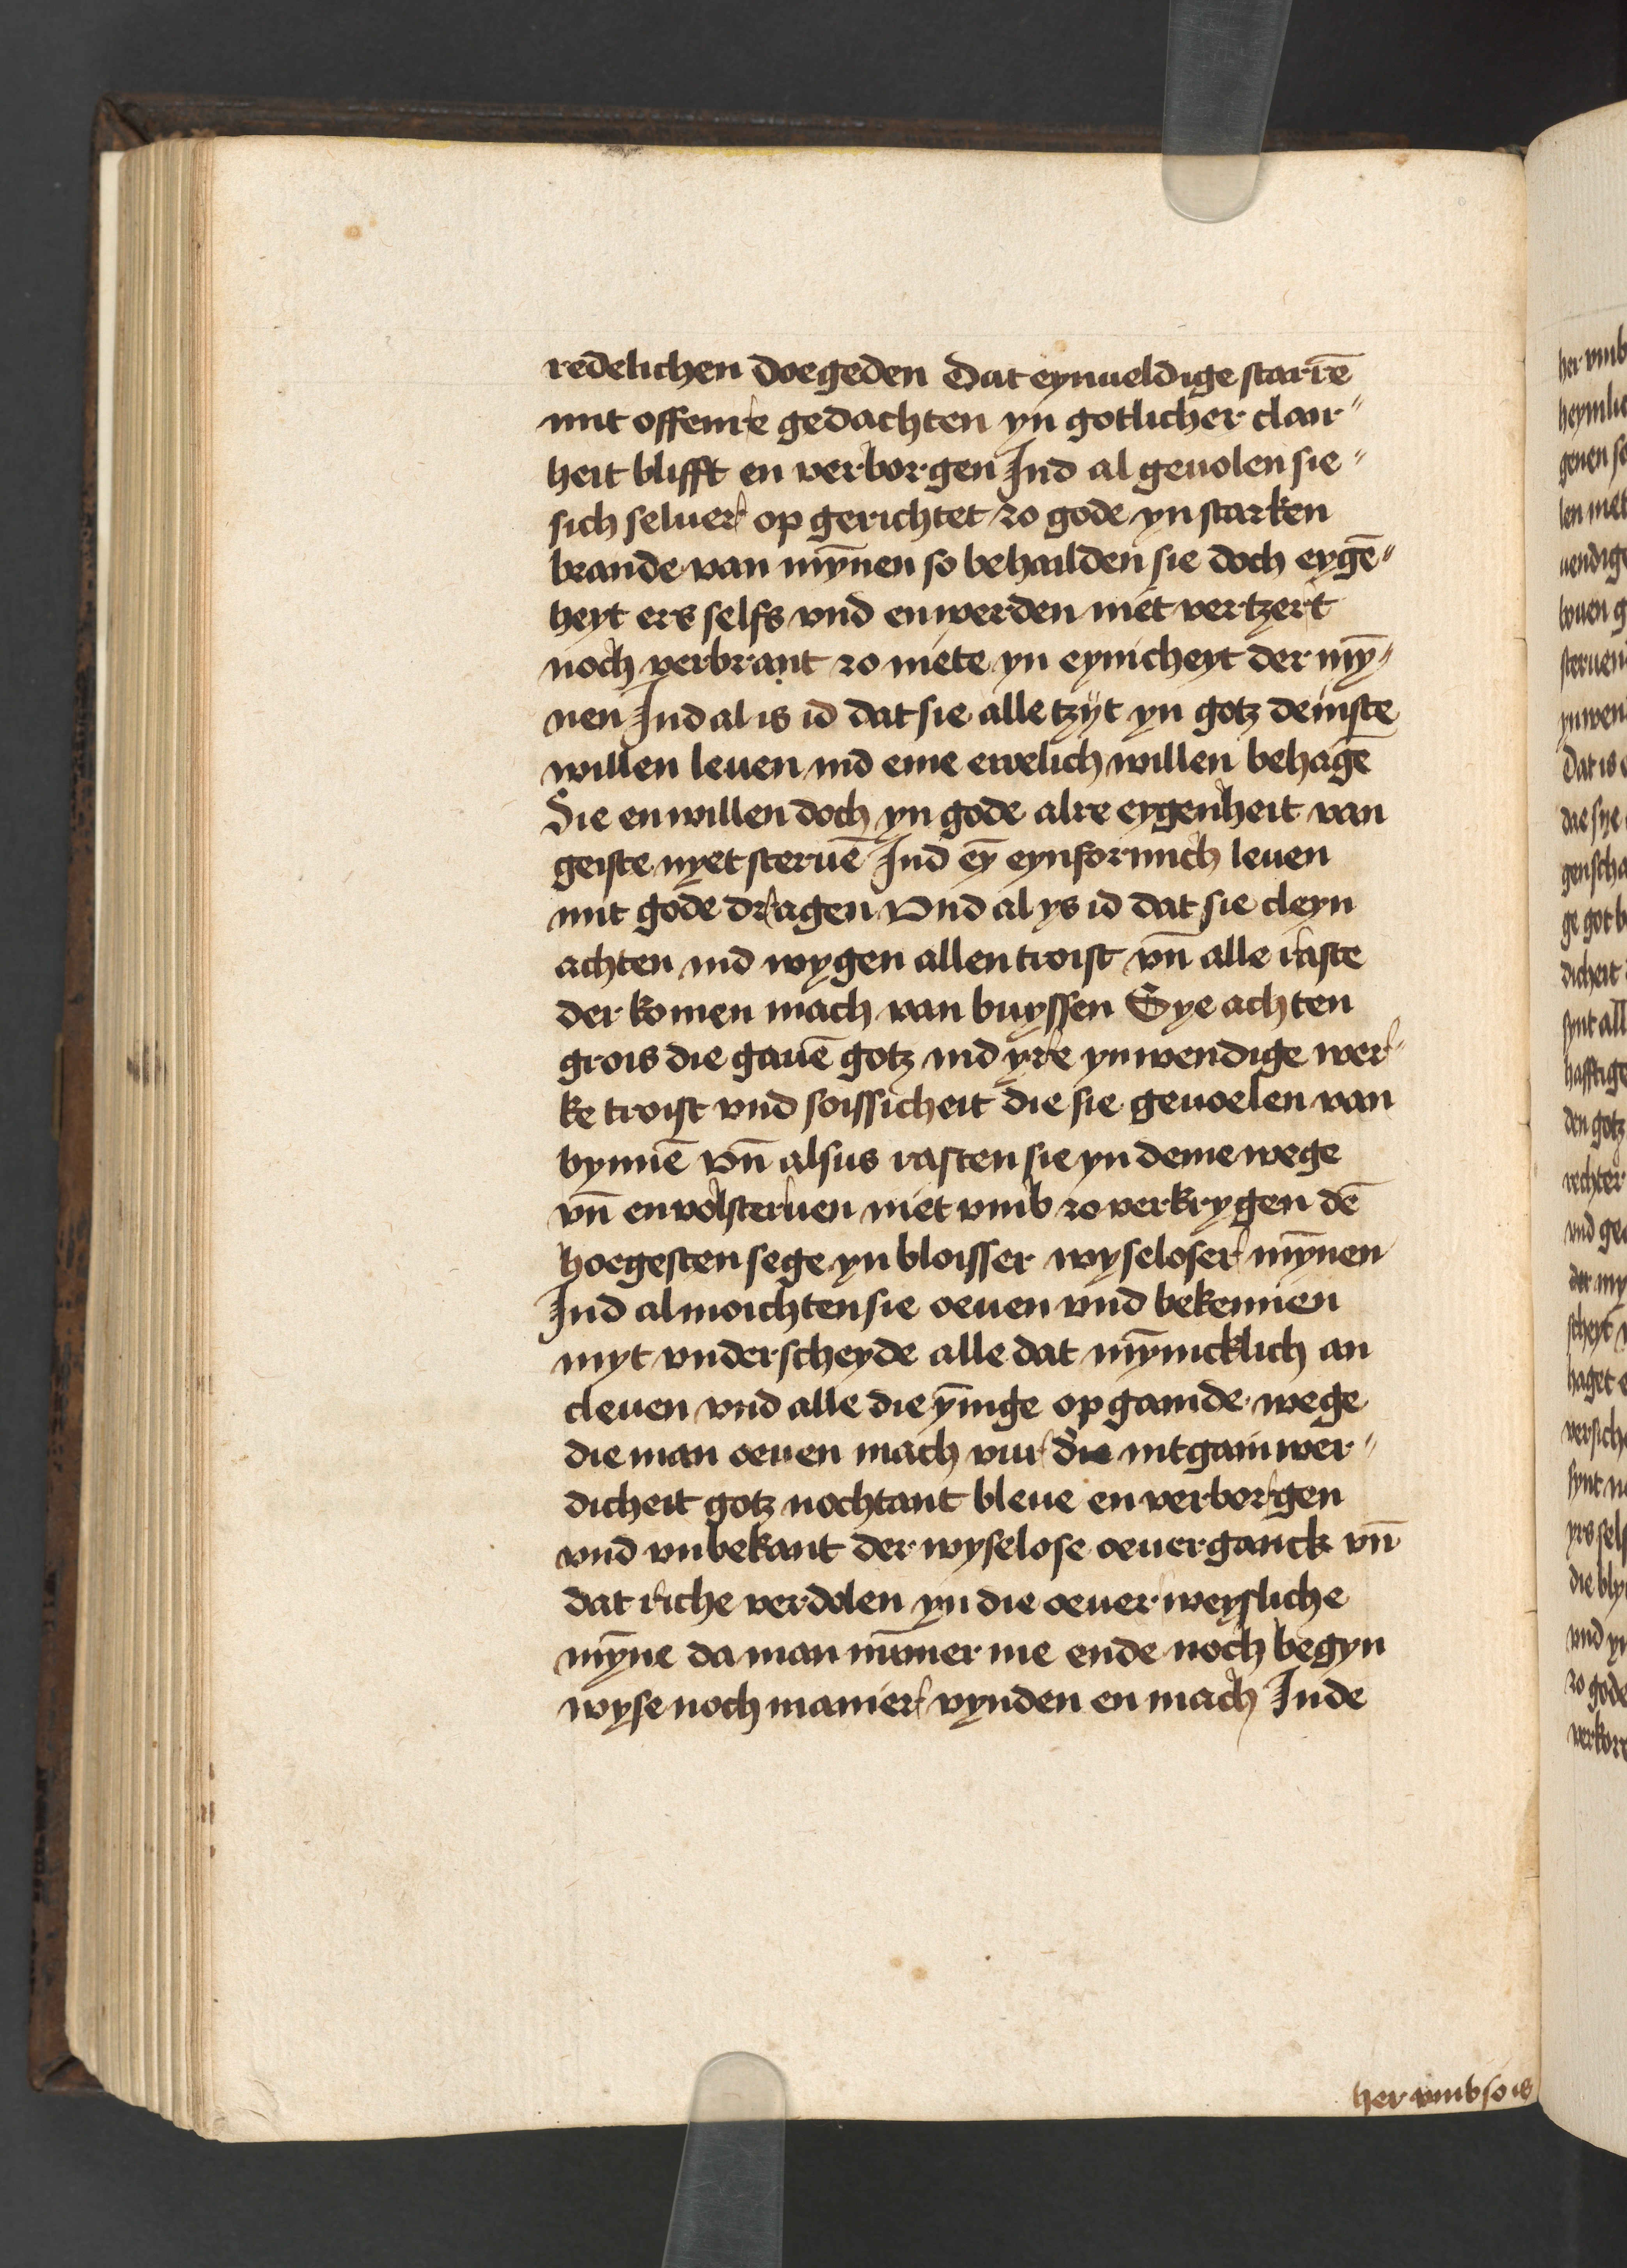 redelichen doegeden Dat eynueldige starrē
mit offenre gedachten yn gotlicher clair〃
heit blifft en verborgen Jnd al geuolen sie〃
sich seluer op gerichtet zo gode yn starken
brande van mȳnen so behailden sie doch eygē〃
heyt ers selfs vnd en werden niet vertzert
noch verbrant zo niete yn eynicheyt der mȳ〃
nen Jnd al is id dat sie alle tzÿt yn gotz deinste
willen leuen ind eme ewelich willen behagē
Sie en willen doch yn gode alre eygenheit van
geiste nyet steruē Jnd eȳ eynformich leuen
mit gode dragen Vnd al ys id dat sie cleyn
achten ind wygen allen troist vn̄ alle raste
der komen mach van buyssen Sye achten
grois die gauē gotz ind yre ynwendige wer〃
ke troist vnd soissicheit die sie geuoelen van
bynnē Vn̄ alsus rasten sie yn deme wege
vn̄ en volsteruen niet vmb zo verkrygen dē
hoegesten sege yn bloisser wyseloser mȳnen
Jnd al moichten sie oeuen vnd bekennen
myt vnderscheyde alle dat mȳnicklich an
cleuen vnd alle die ȳnige op gainde wege
die man oeuen mach vur die intgainwer〃
dicheit gotz nochtant bleue en verborgen
vnd vnbekant der wyselose oeuerganck vn̄
dat riche verdolen yn die oeuerweysliche
mȳne da man nūmer me ende noch begyn
wyse noch manier vynden en mach Jnde
her vmb so is